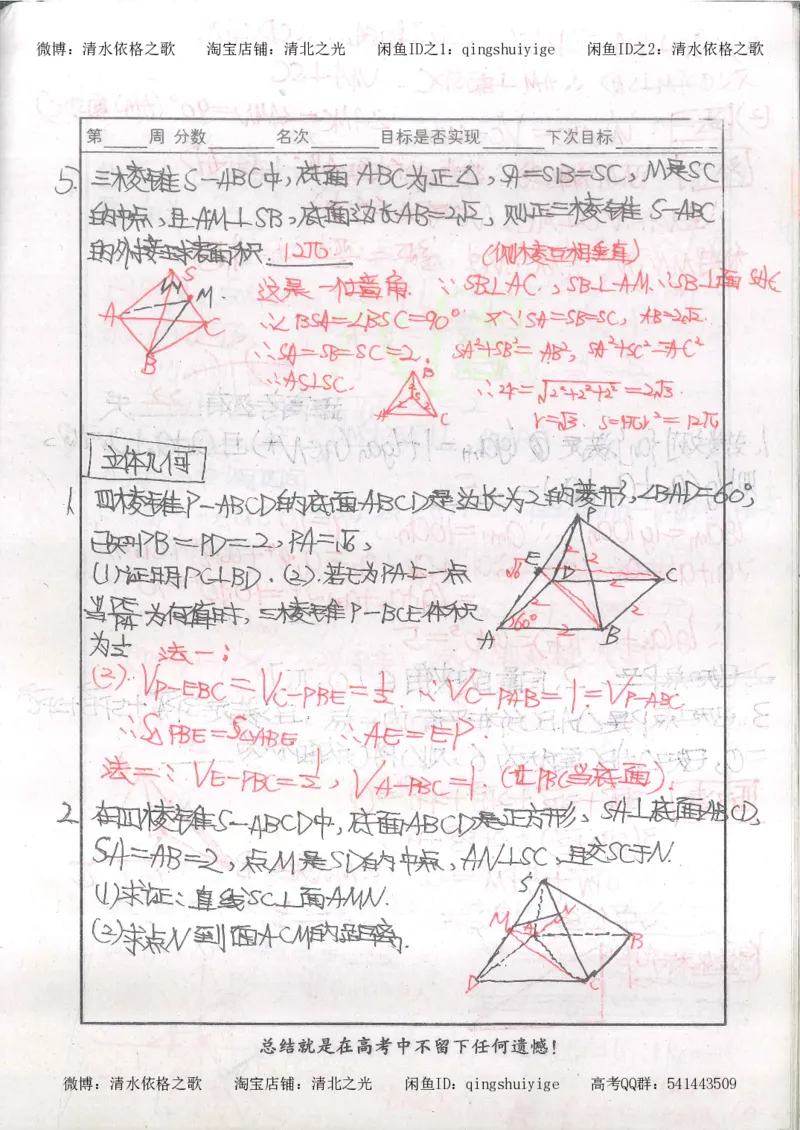 微博：清水依格之歌 淘宝店铺：清北之光 闲鱼ID之1：qingshuiyige 闲鱼ID之2：清水依格之歌
第 周 分数 名次 目标是否实现 下次目标
5. 三棱锥S-ABC中，底面ABC为正△，SA=SB=SC，M是SC
的中点，且AM⊥SB，底面边长AB=2√2，则正三棱锥S-ABC
的外接球表面积 12π (侧棱互相垂直)
S
M
A
C
B
这是一位意角. ∵SB⊥AC.，SB⊥AM.∴SB⊥面SAC
∴∠BSA=∠BSC=90° 又∵SA=SB=SC，AB=2√2.
∴SA=SB=SC=2. SA²+SB²=AB²，SA²+SC²=AC²
∴AS⊥SC.
B
S
2
2
2
A
C
∴2r=√2²+2²+2²=2√3.
r=√3. S=4πr²=12π
立体几何
1. 四棱锥P-ABCD的底面ABCD是边长为2的菱形，∠BAD=60°，
已知PB=PD=2，PA=√6，
(1)证明PC⊥BD.(2).若E为PA上一点
当PE/PA为何值时，三棱锥P-BCE体积
为1/2
P
E
√6
D
C
2
2
2
2
2
2
60°
A
B
法一：
(2).V_{P-EBC}=V_{C-PBE}=1/2 ∵V_{C-PAB}=1=V_{P-ABC}
∴S△PBE=S△ABE ∴AE=EP.
法二：V_{E-PBC}=1/2，V_{A-PBC}=1.(世PBC当底面).
2. 在四棱锥S-ABCD中，底面ABCD是正方形，SA⊥底面ABCD，
SA=AB=2，点M是SD的中点，AN⊥SC，且交SC于N.
(1)求证：直线SC⊥面AMN.
(2)求点N到面ACM的距离.
S
M
A
N
B
D
C
总结就是在高考中不留下任何遗憾！
微博：清水依格之歌 淘宝店铺：清北之光 闲鱼ID：qingshuiyige 高考QQ群：541443509